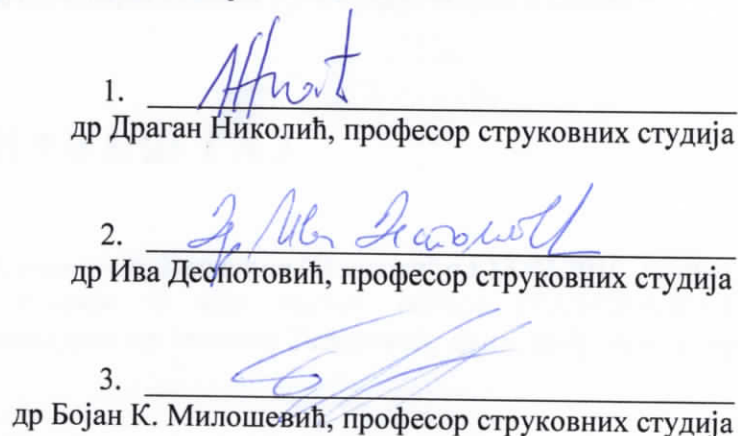 1.
др Драган Николић, професор струковних студија
2. Др Ива Деспотовић
др Ива Деспотовић, професор струковних студија
3.
др Бојан К. Милошевић, професор струковних студија